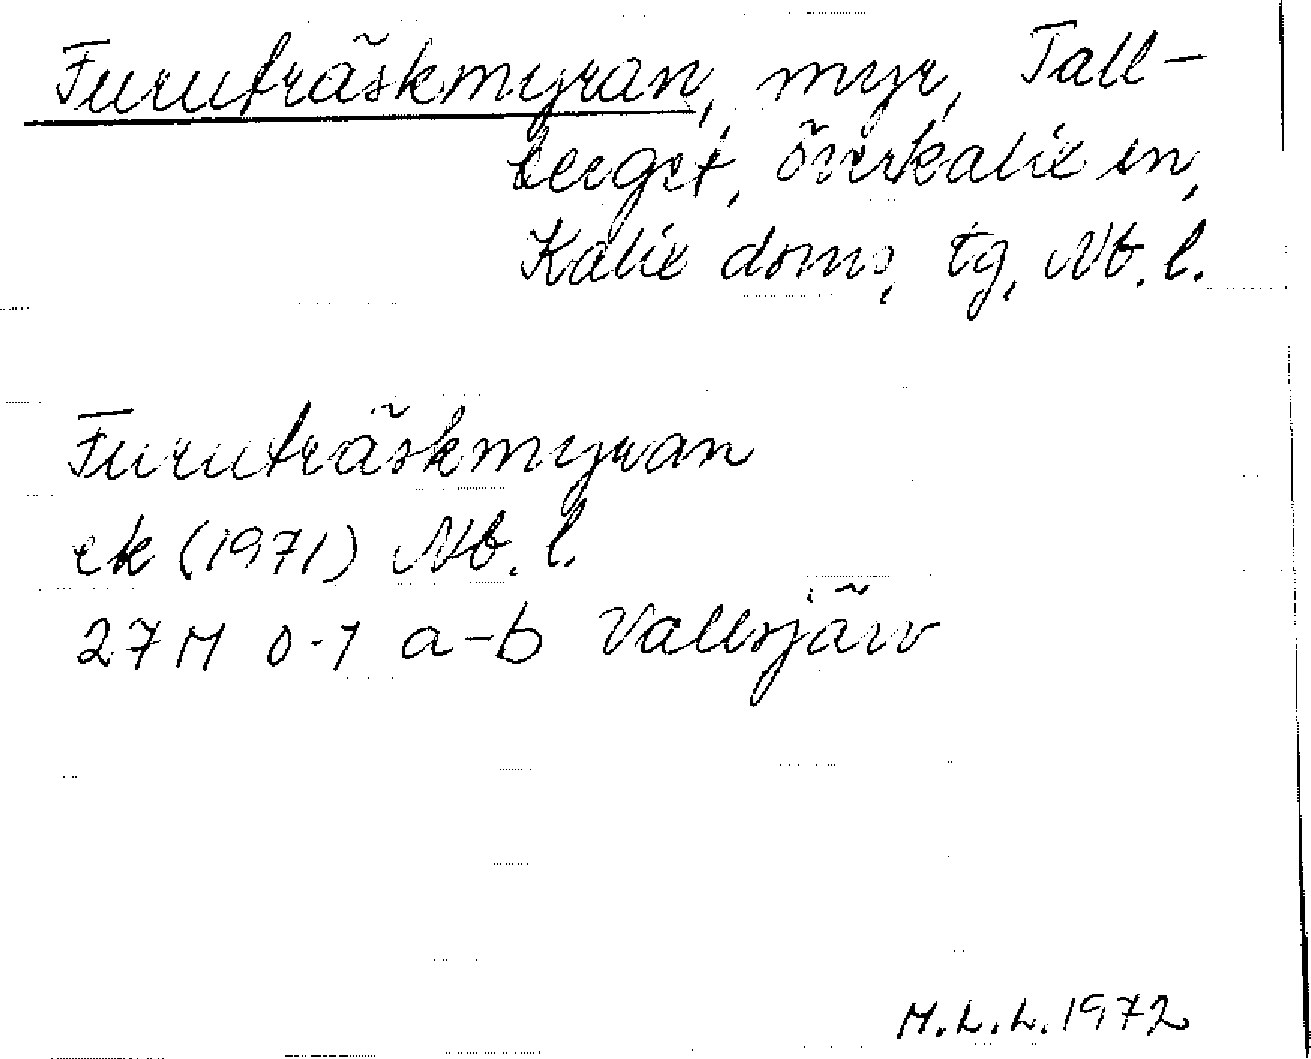 Furuträskmyran, myr, Tall-
berget, överkalix sn,
Kalix doms, tg, Nb. l.
Furuträskmyran
ek (1971) Nb. l.
27M 0-1 a-b Vallsjärv
M.L.L. 1972